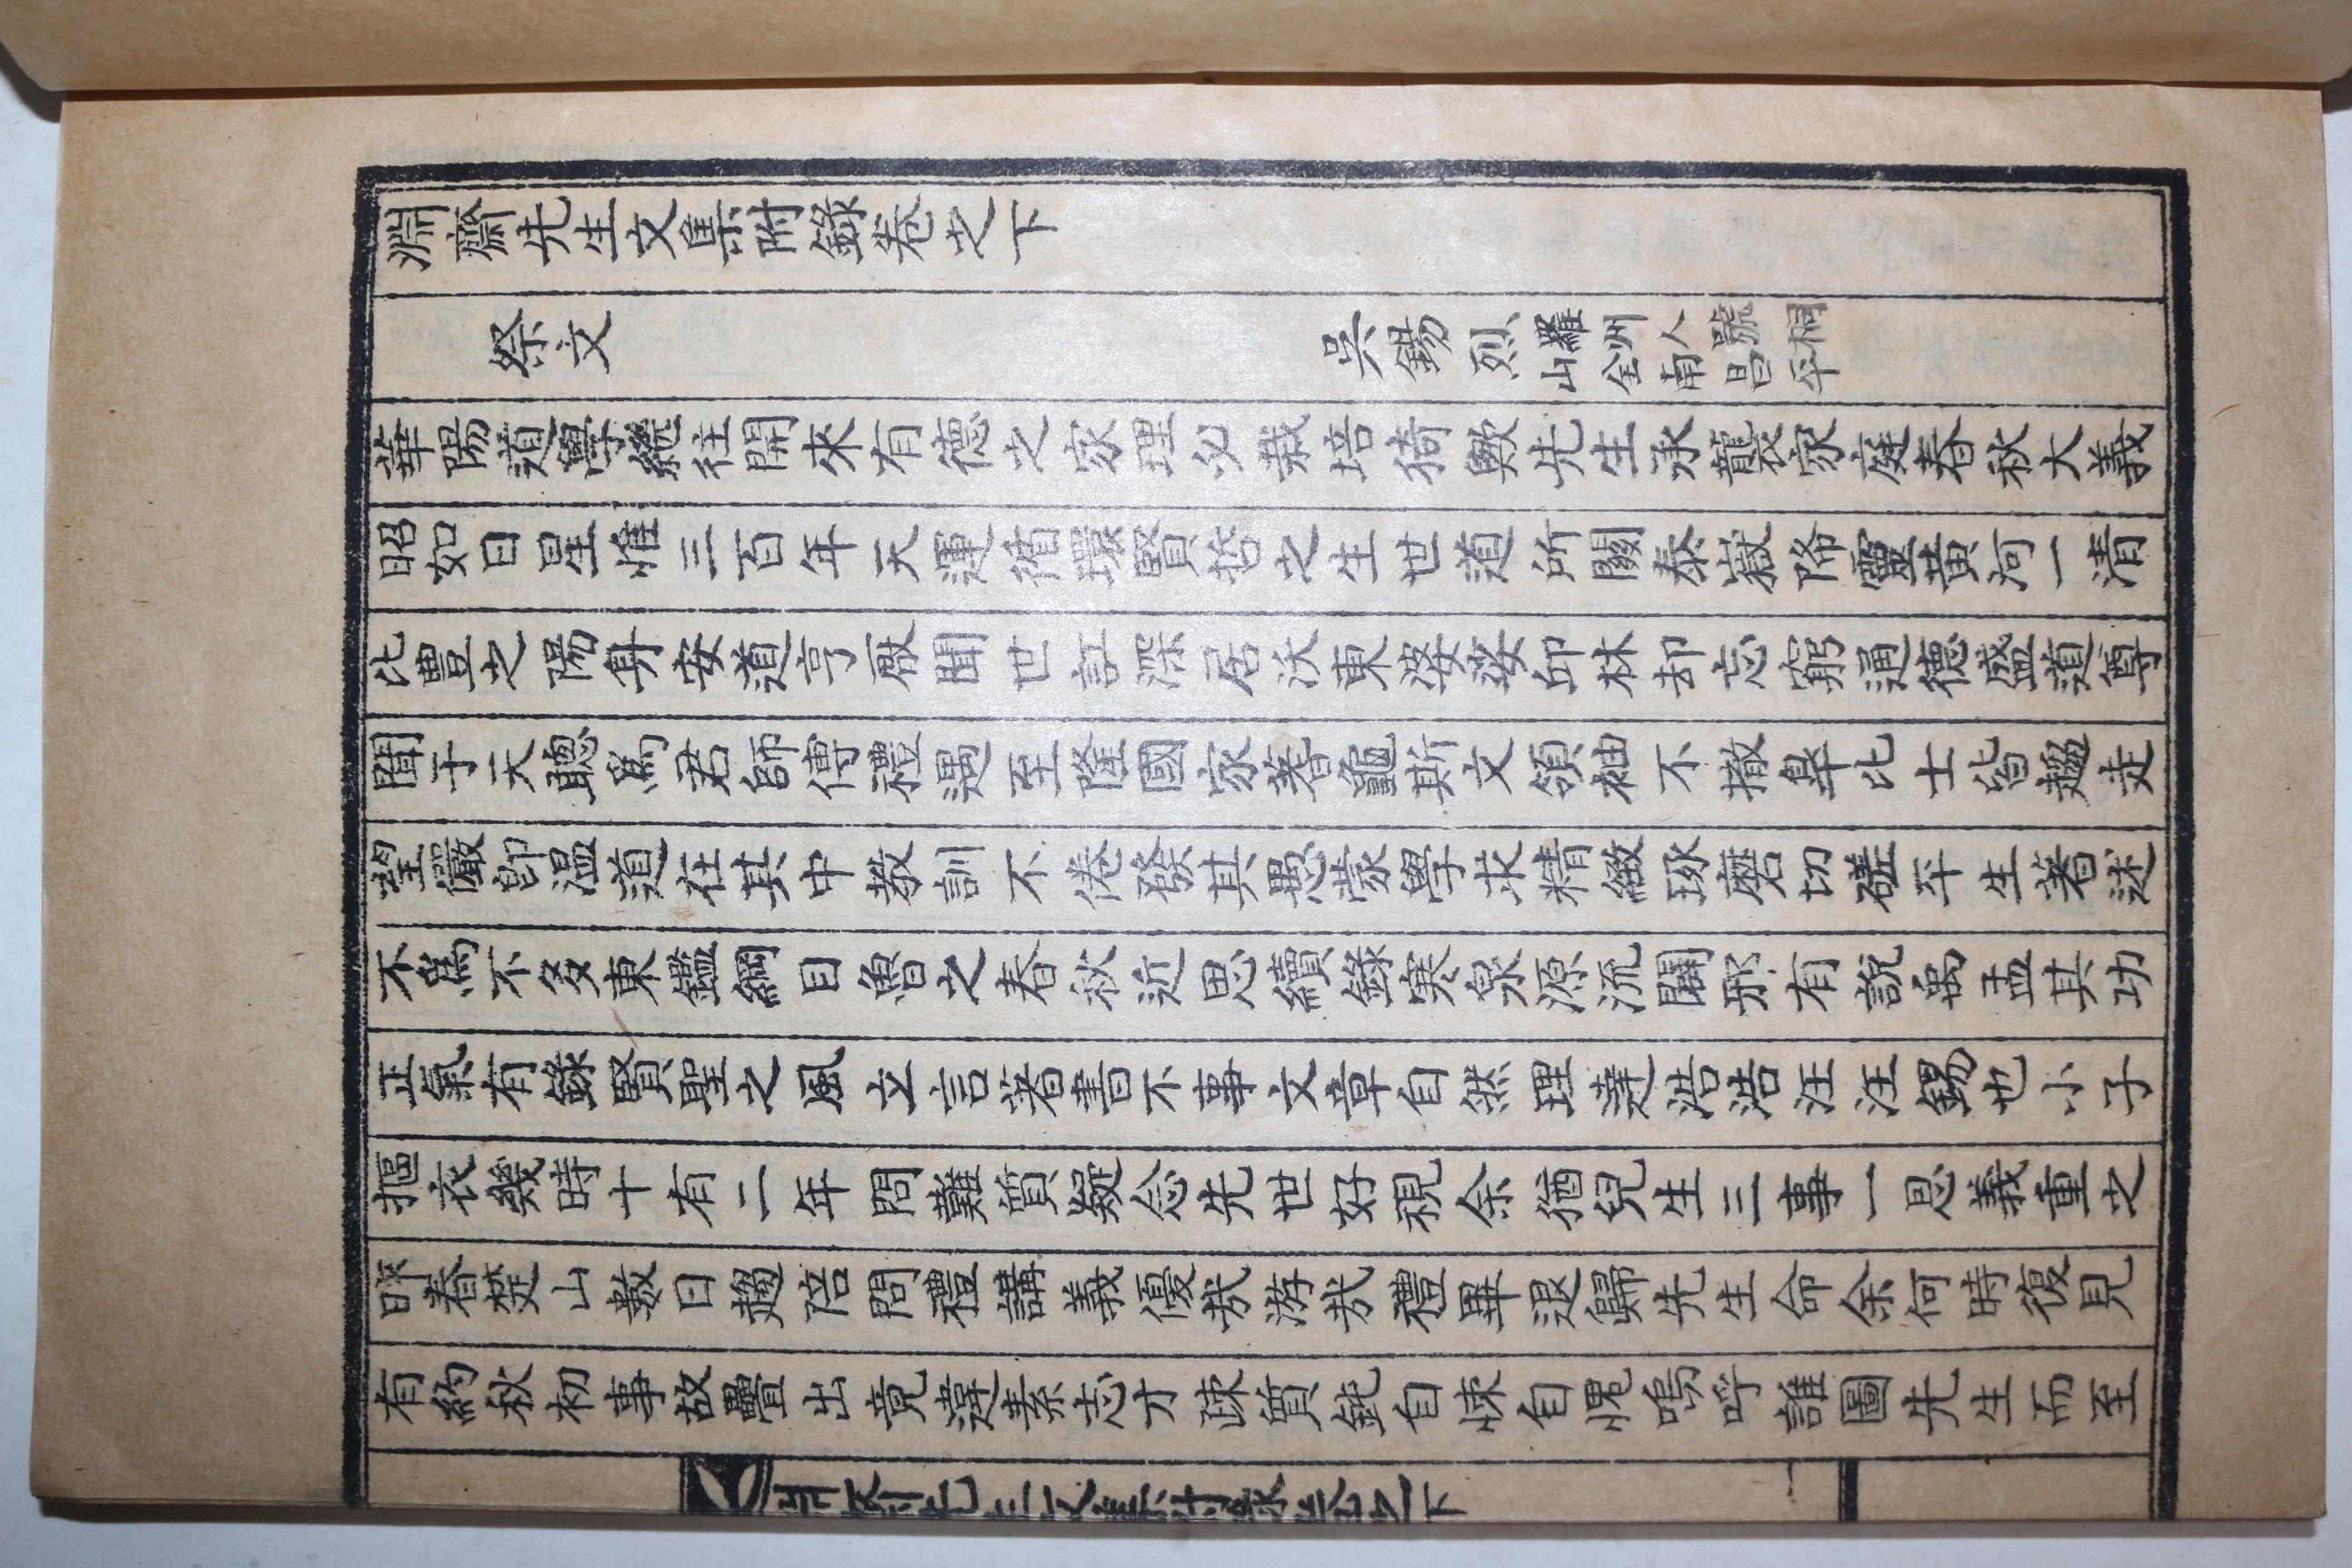 淵齋先生文集附錄卷之下
祭文 吳錫烈 羅州人號桐山全南昌平
華陽道學繼往開來有德之家理必栽培猗歟先生承襲家庭春秋大義
昭如日星惟三百年天運循環賢哲之生世道所關泰嶽降靈黃河一清
比豊之陽身安道亨厭聞世訌深居沃東婆娑邱林却忘窮通德盛道尊
聞于天聰爲君師傅禮遇至隆國家蓍龜斯文領袖不撤皐比士皆趨走
望儼卽溫道在其中教訓不倦發其愚蒙學求精緻琢磨切磋平生著述
不爲不多東鑑綱目魯之春秋近思續錄寒泉源流闢邪有說禹孟其功
正氣有錄賢聖之風立言著書不事文章自然理達浩浩汪汪錫也小子
摳衣幾時十有二年問難質疑念先世好視余猶兒生三事一恩義重之
昨春楚山數日趨陪問禮講義優哉游哉禮畢退歸先生命余何時復見
有約秋初事故疊出竟違素志才疎質鈍自悚自愧嗚呼誰圖先生而至
淵齋先生文集附錄卷之下 一